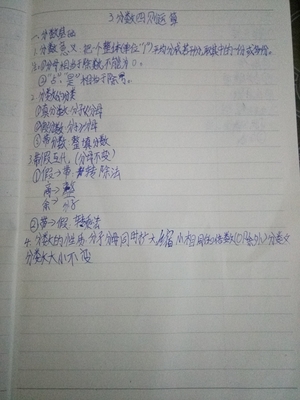 3分数四则运算
一.分数基础
1.分数意义:把一个整体(单位"1")平均分成若干份,取其中的一份或多份。
①分母相当于除数,不能为0。
②"占""是"相当于除号。
2.分数的分类
①真分数:分子<分母
②假分数:分子≥分母
③带分数:整数 分数
3.带假互化.(分母不变)
①假→带 转除法
商→整
余→分子
②带→假
4.分数的性质.分子分母同时扩大缩小相同的倍数(0除外)分数
大小不变